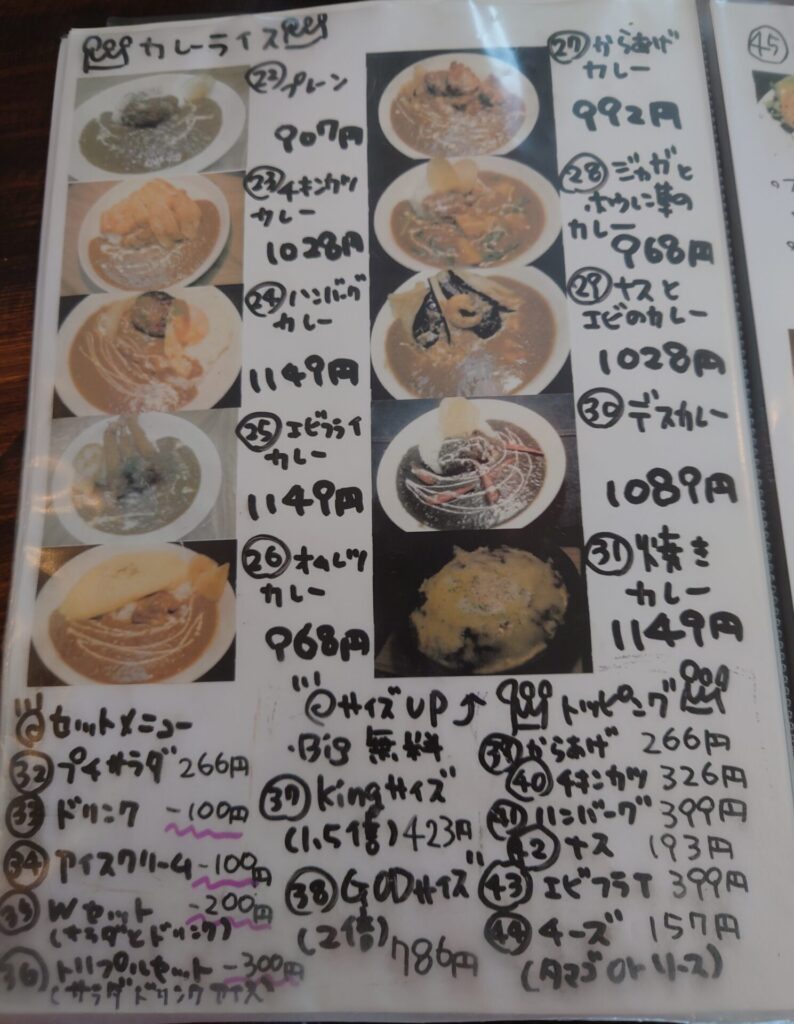 カレーライス
22 プレーン
907円
23 チキンカツ
カレー
1028円
24 ハンバーグ
カレー
1149円
25 エビフライ
カレー
1149円
26 オムレツ
カレー
968円
27 からあげ
カレー
992円
28 ジャガと
ホウレン草の
カレー
968円
29 ナスと
エビのカレー
1028円
30 デスカレー
1089円
31 焼き
カレー
1149円
セットメニュー
32 プチサラダ 266円
33 ドリンク -100円
34 アイスクリーム -100円
35 Wセット -200円
(サラダとドリンク)
36 トリプルセット -300円
(サラダドリンクアイス)
サイズUP↑
・Big 無料
37 Kingサイズ
(1.5倍) 423円
38 GODサイズ
(2倍)
786円
トッピング
39 からあげ 266円
40 チキンカツ 326円
41 ハンバーグ 399円
42 ナス 193円
43 エビフライ 399円
44 チーズ 157円
45